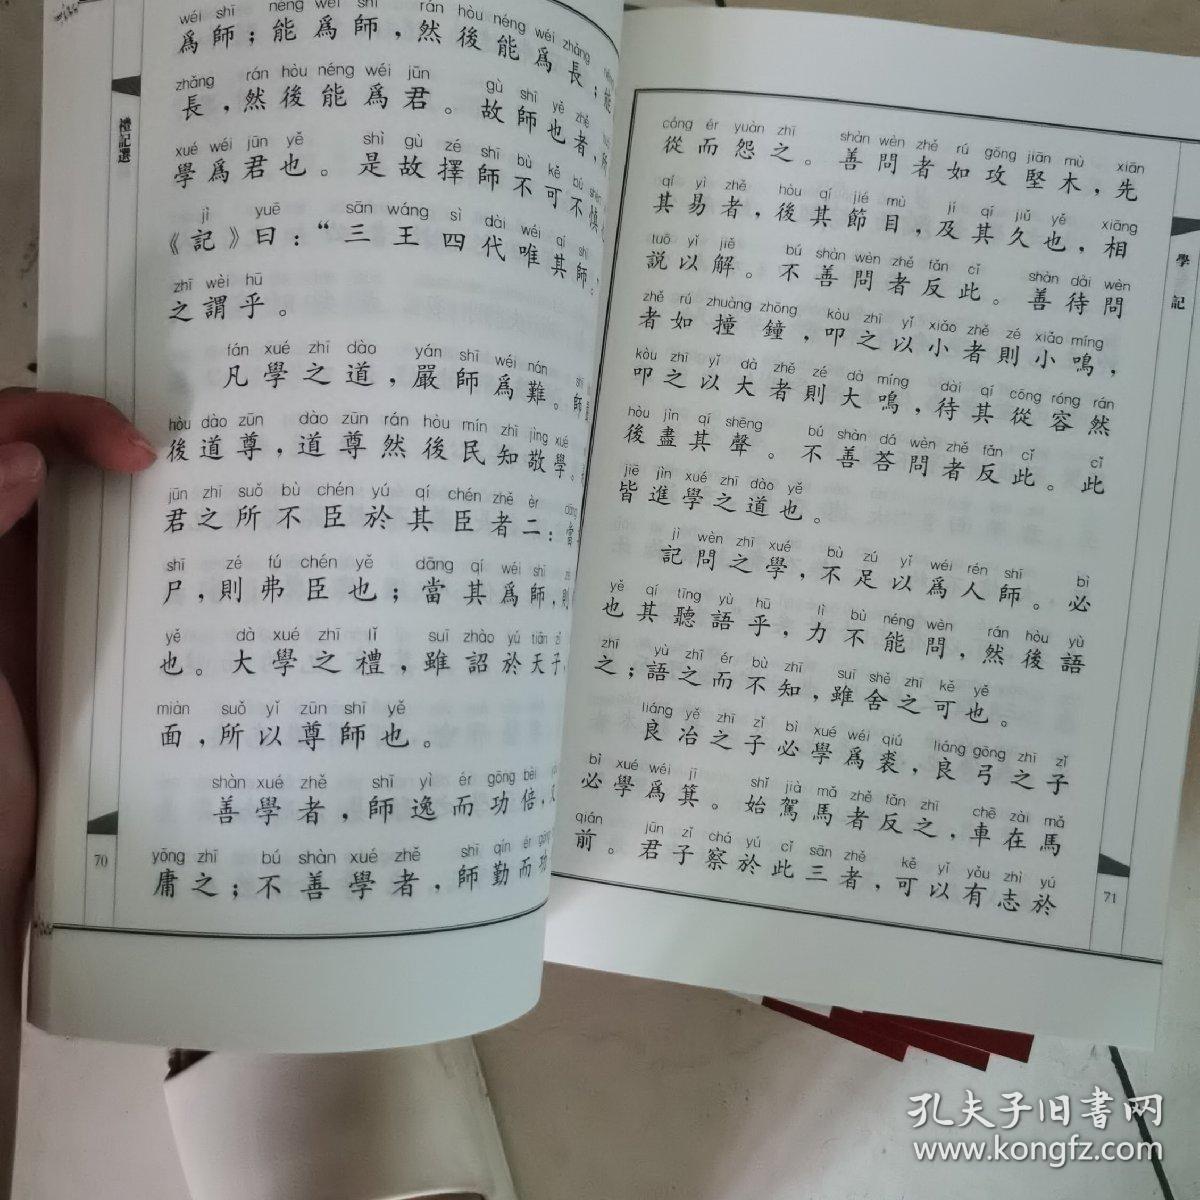 禮記選
wéi shī néng wéi shī rán hòu néng wéi zhǎng
爲師；能爲師，然後能爲長；能
zhǎng rán hòu néng wéi jūn gù shī yě zhě
長，然後能爲君。故師也者，所
xué wéi jūn yě shì gù zé shī bù kě bú shèn
學爲君也。是故擇師不可不慎
jì yuē sān wáng sì dài wéi qí shī
《記》曰：“三王四代唯其師。
zhī wèi hū
之謂乎。
fán xué zhī dào yán shī wéi nán shī
凡學之道，嚴師爲難。師
hòu dào zūn dào zūn rán hòu mín zhī jìng xué
後道尊，道尊然後民知敬學。
jūn zhī suǒ bù chén yú qí chén zhě èr dāng
君之所不臣於其臣者二：當
shī zé fú chén yě dāng qí wéi shī zé
尸，則弗臣也；當其爲師，則
yě dà xué zhī lǐ suī zhào yú tiān zǐ
也。大學之禮，雖詔於天子，
miàn suǒ yǐ zūn shī yě
面，所以尊師也。
shàn xué zhě shī yì ér gōng bèi yòu
善學者，師逸而功倍，又
yōng zhī bú shàn xué zhě shī qín ér gōng
庸之；不善學者，師勤而功
70
cóng ér yuàn zhī shàn wèn zhě rú gōng jiān mù xiān
從而怨之。善問者如攻堅木，先
qí yì zhě hòu qí jié mù jí qí jiǔ yě xiāng
其易者，後其節目，及其久也，相
tuō yǐ jiě bú shàn wèn zhě fǎn cǐ shàn dài wèn
說以解。不善問者反此。善待問
zhě rú zhuàng zhōng kòu zhī yǐ xiǎo zhě zé xiǎo míng
者如撞鐘，叩之以小者則小鳴，
kòu zhī yǐ dà zhě zé dà míng dài qí cōng róng rán
叩之以大者則大鳴，待其從容然
hòu jìn qí shēng bú shàn dá wèn zhě fǎn cǐ cǐ
後盡其聲。不善荅問者反此。此
jiē jìn xué zhī dào yě
皆進學之道也。
jì wèn zhī xué bù zú yǐ wéi rén shī bì
記問之學，不足以爲人師。必
yě qí tīng yù hū lì bù néng wèn rán hòu yù
也其聽語乎，力不能問，然後語
zhī yù zhī ér bù zhī suī shě zhī kě yě
之；語之而不知，雖舍之可也。
liáng yě zhī zǐ bì xué wéi qiú liáng gōng zhī zǐ
良冶之子必學爲裘，良弓之子
bì xué wéi jī shǐ jià mǎ zhě fǎn zhī chē zài mǎ
必學爲箕。始駕馬者反之，車在馬
qián jūn zǐ chá yú cǐ sān zhě kě yǐ yǒu zhì yú
前。君子察於此三者，可以有志於
學記
71
孔夫子旧书网
www.kongfz.com